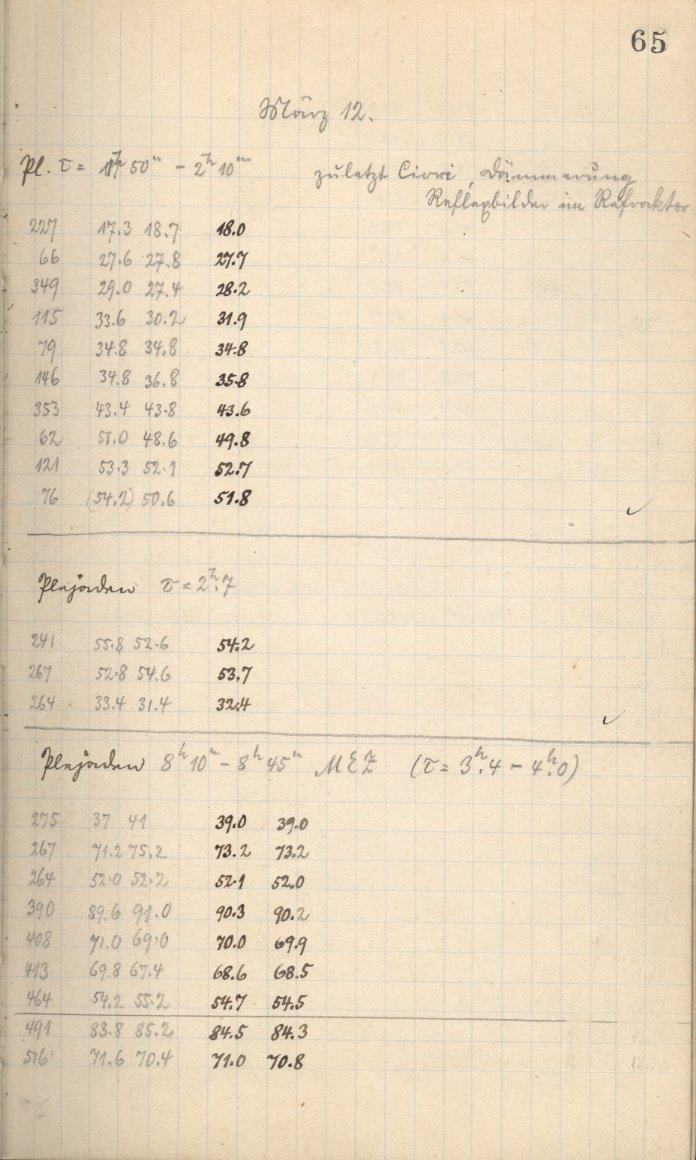 65
März 12.
Pl. τ = 1h 50m – 2h 10m zuletzt Cirri, Dämmerung
Reflexbilder im Refraktor
227 17.3 18.7 18.0
66 27.6 27.8 27.7
349 29.0 27.4 28.2
115 33.6 30.2 31.9
79 34.8 34.8 34.8
146 34.8 36.8 35.8
353 43.4 43.8 43.6
62 51.0 48.6 49.8
121 53.3 52.1 52.7
76 (54.2) 50.6 51.8
Plejaden τ = 2h.7
241 55.8 52.6 54.2
267 52.8 54.6 53.7
264 33.4 31.4 32.4
Plejaden 8h 10m – 8h 45m MEZ (τ = 3h.4 – 4h.0)
275 37 41 39.0 39.0
267 71.2 75.2 73.2 73.2
264 52.0 52.2 52.1 52.0
390 89.6 91.0 90.3 90.2
408 71.0 69.0 70.0 69.9
413 69.8 67.4 68.6 68.5
464 54.2 55.2 54.7 54.5
491 83.8 85.2 84.5 84.3
516 71.6 70.4 71.0 70.8